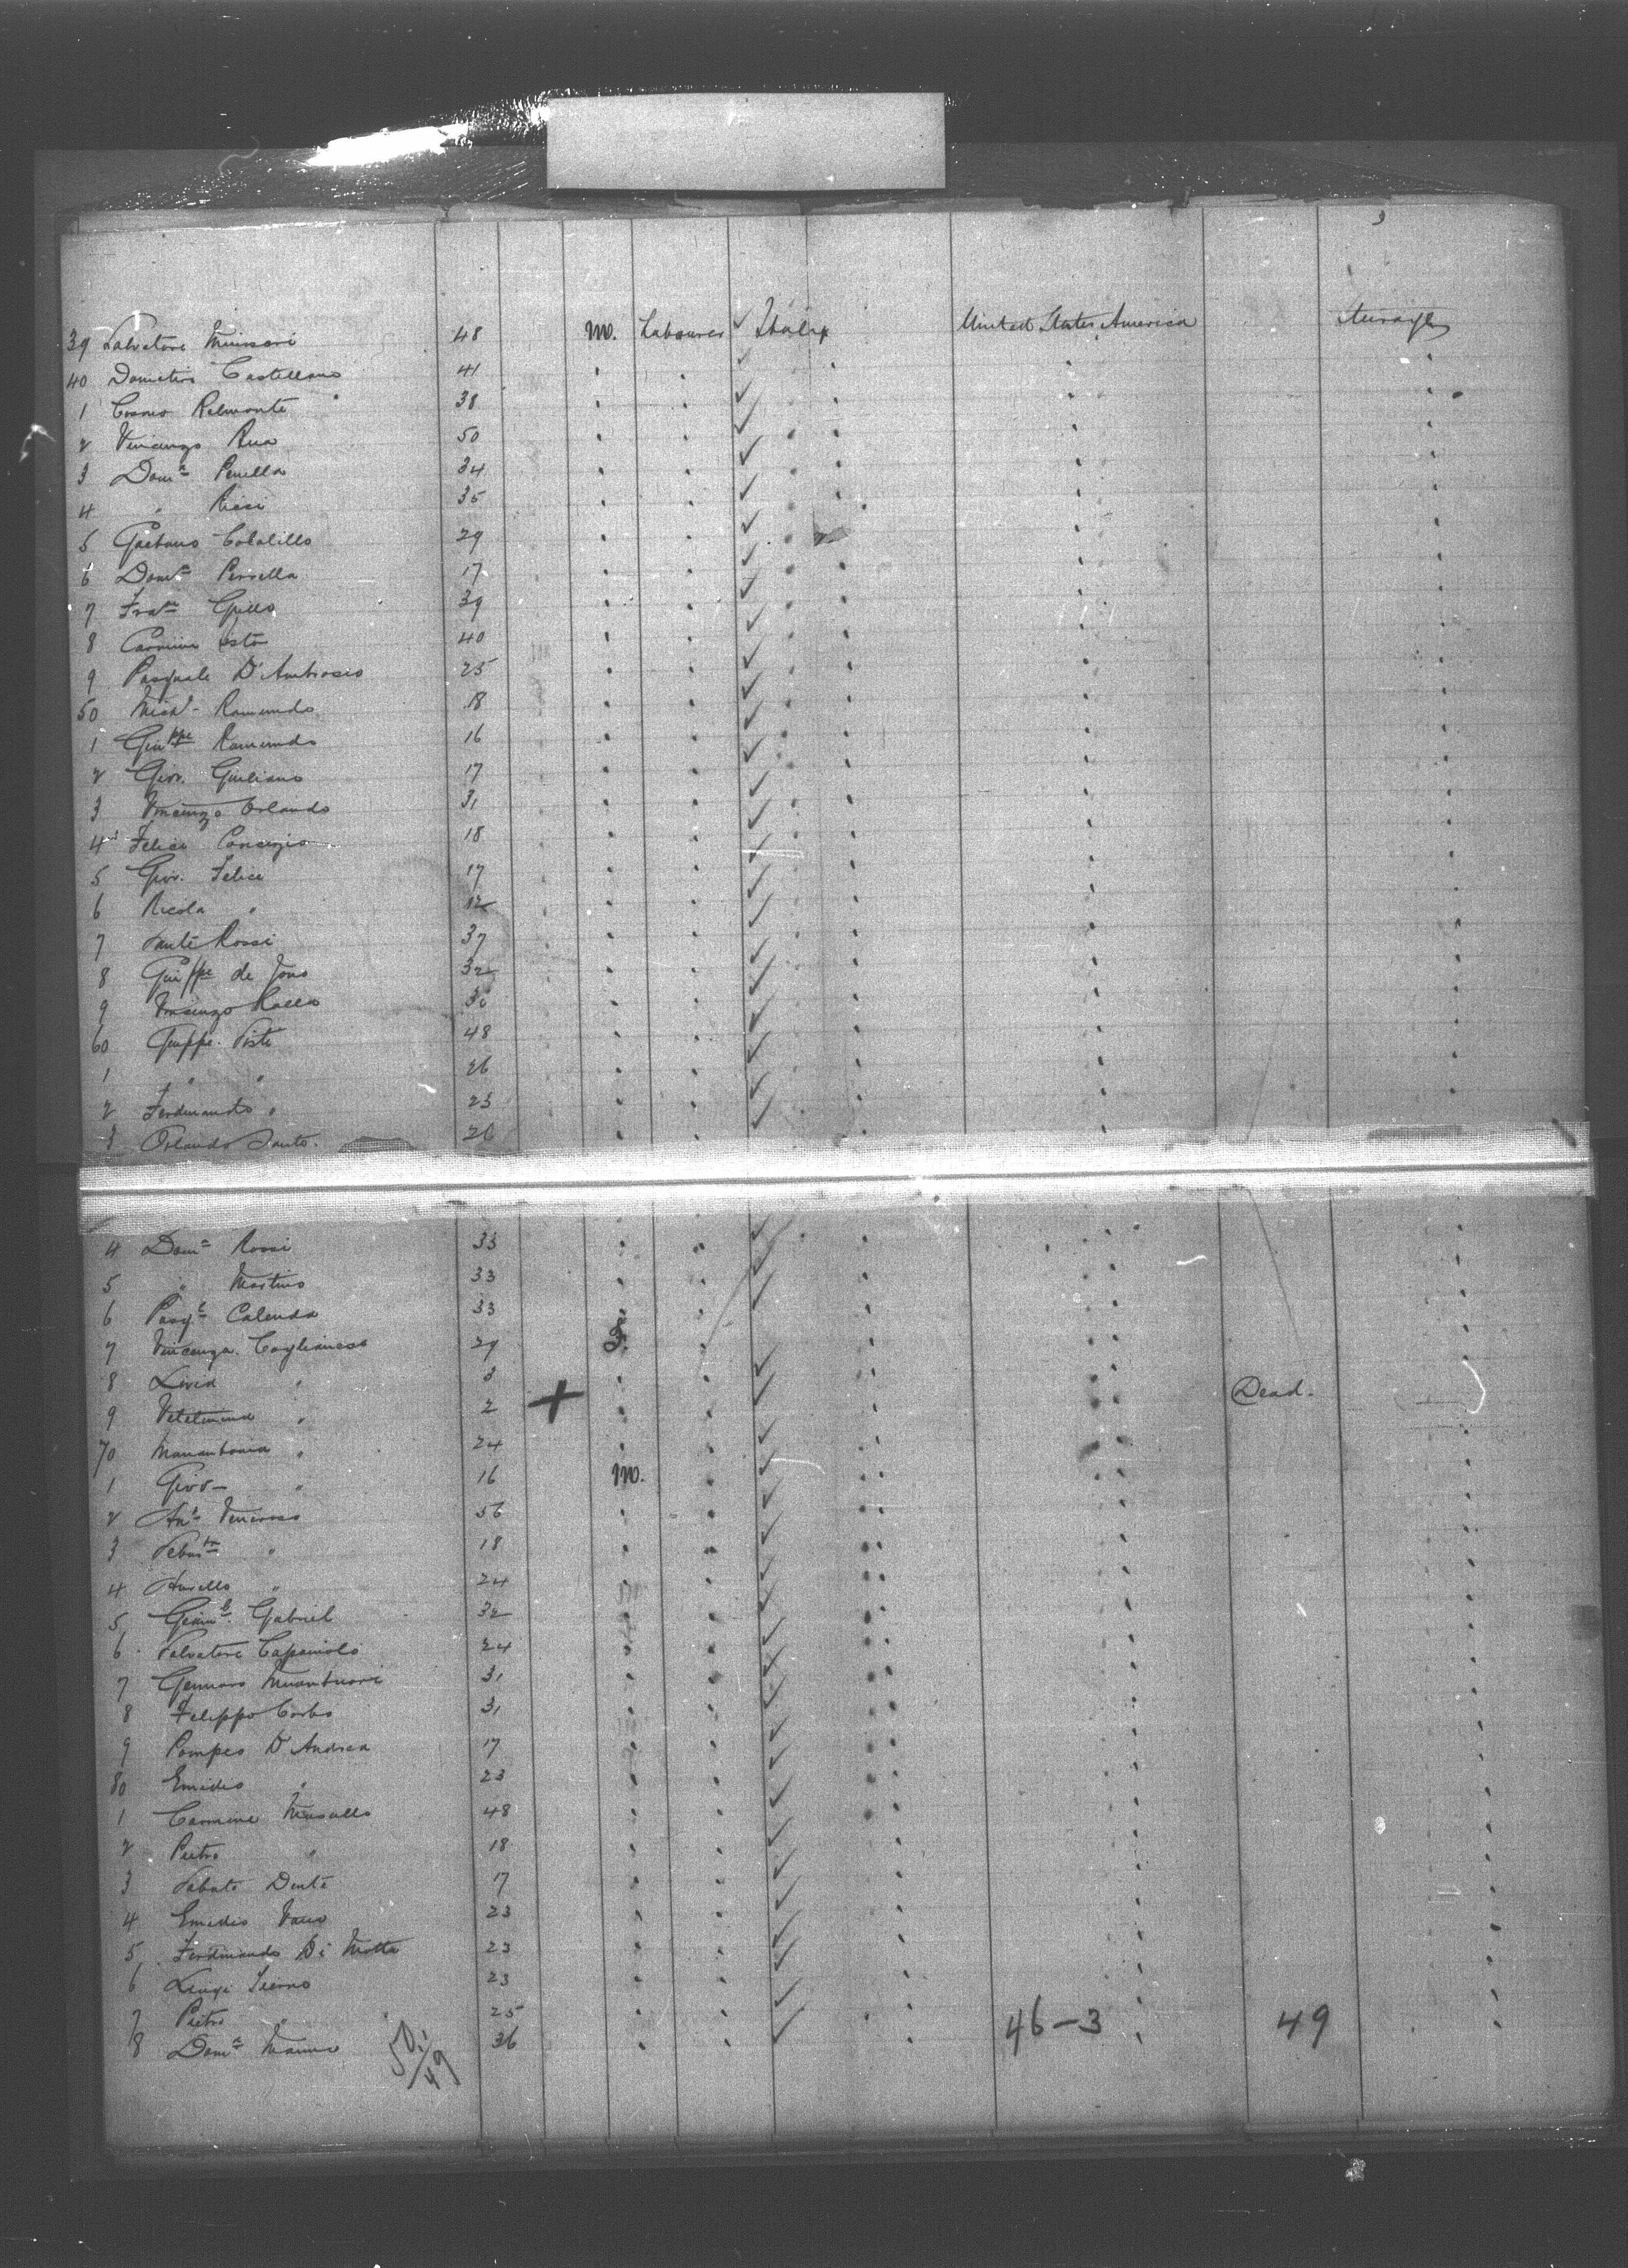 39 Salvatore Minissari 48 m. Labourer ✓ Italy United States America Steerage
40 Demetrio Castellano 41
1 Cosmo Relmonte 38
2 Vincenzo Rua 50
3 Domco Penella 34
4 " Ricci 35
5 Gaetano 29
6 Domco Persella 17
7 Fraco Grillo 39
8 Carmine 40
9 Pasquale D'Ambrosio 25
50 Michl Ramundo 18
1 Giuppe Ramundo 16
2 Giov. Giuliano 17
3 Vincenzo Orlando 31
4 Felice Concezio 18
5 Giov. Felice 17
6 Nicola " 12
7 Sante Rossi 37
8 Giuppe de 32
9 Vincenzo Rallo 30
60 Giuppe. Siste 48
1 " " 26
2 Ferdinando " 23
3 Orlando Santo. 20
4 Domco Rossi 33
5 " Martino 33
6 Pasqle Calenda 33
7 Vincenza Coglianese 29 F.
8 Livia " 3
9 " 2 + Dead.
70 Mariantonia " 24
1 Giov— " 16 m.
2 Anto Veneroso 56
3 Sebastno " 18
4 Aniello " 24
5 Gabriel 32
6 Salvatore 24
7 Gennaro 31
8 Filippo Corbo 31
9 Pompeo D'Andrea 17
80 Emidio " 23
1 Carmine Masullo 48
2 Pietro " 18
3 Sabato Dente 17
4 Emidio 23
5 Ferdinando Di Motta 23
6 Luigi Iierno 23
7 Pietro " 25 46–3 49
8 Domco Manna 36
50/49